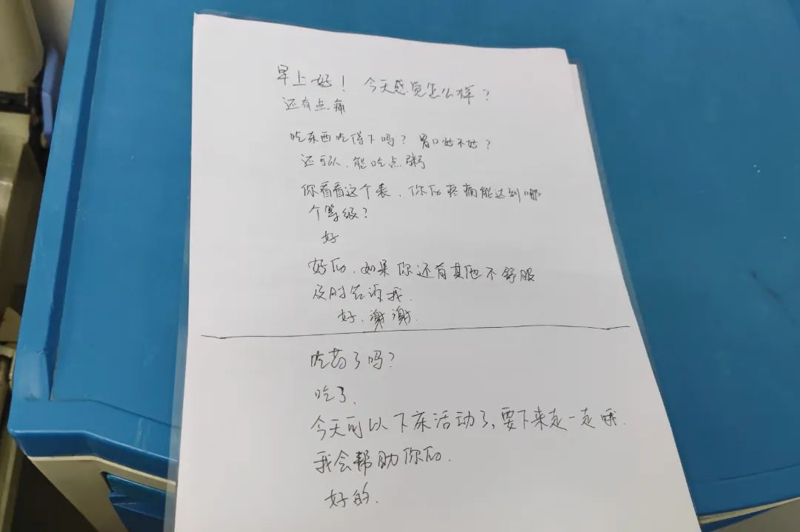 早上好！ 今天感觉怎么样？
还有点痛
吃东西吃得下吗？胃口好不好？
还可以，能吃点粥
你看看这个表，你的疼痛能达到哪
个等级？
好
好的，如果你还有其他不舒服
及时告诉我.
好，谢谢.
吃药了吗？
吃了.
今天可以下床活动了，要下来走一走哦.
我会帮助你的.
好的.